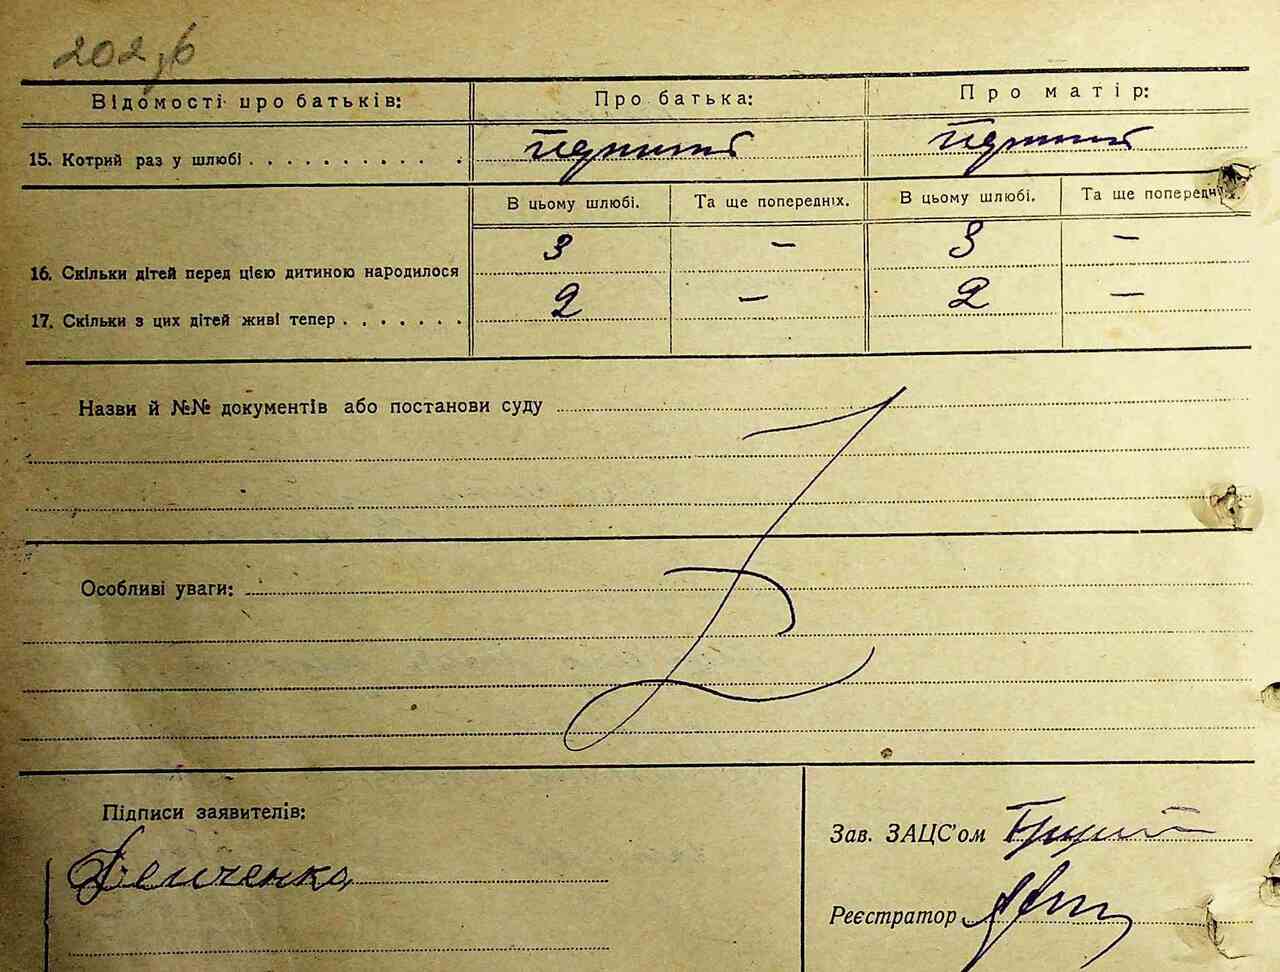 202
Відомості про батьків: Про батька: Про матір:
15. Котрий раз у шлюбі . . . . . . . . . . .
В цьому шлюбі. Та ще попередніх. В цьому шлюбі. Та ще попередніх.
16. Скільки дітей перед цією дитиною народилося 3 — 3 —
17. Скільки з цих дітей живі тепер . . . . . . . 2 — 2 —
Назви й №№ документів або постанови суду
Особливі уваги:
Підписи заявителів:
Зав. ЗАЦС'ом
Реєстратор